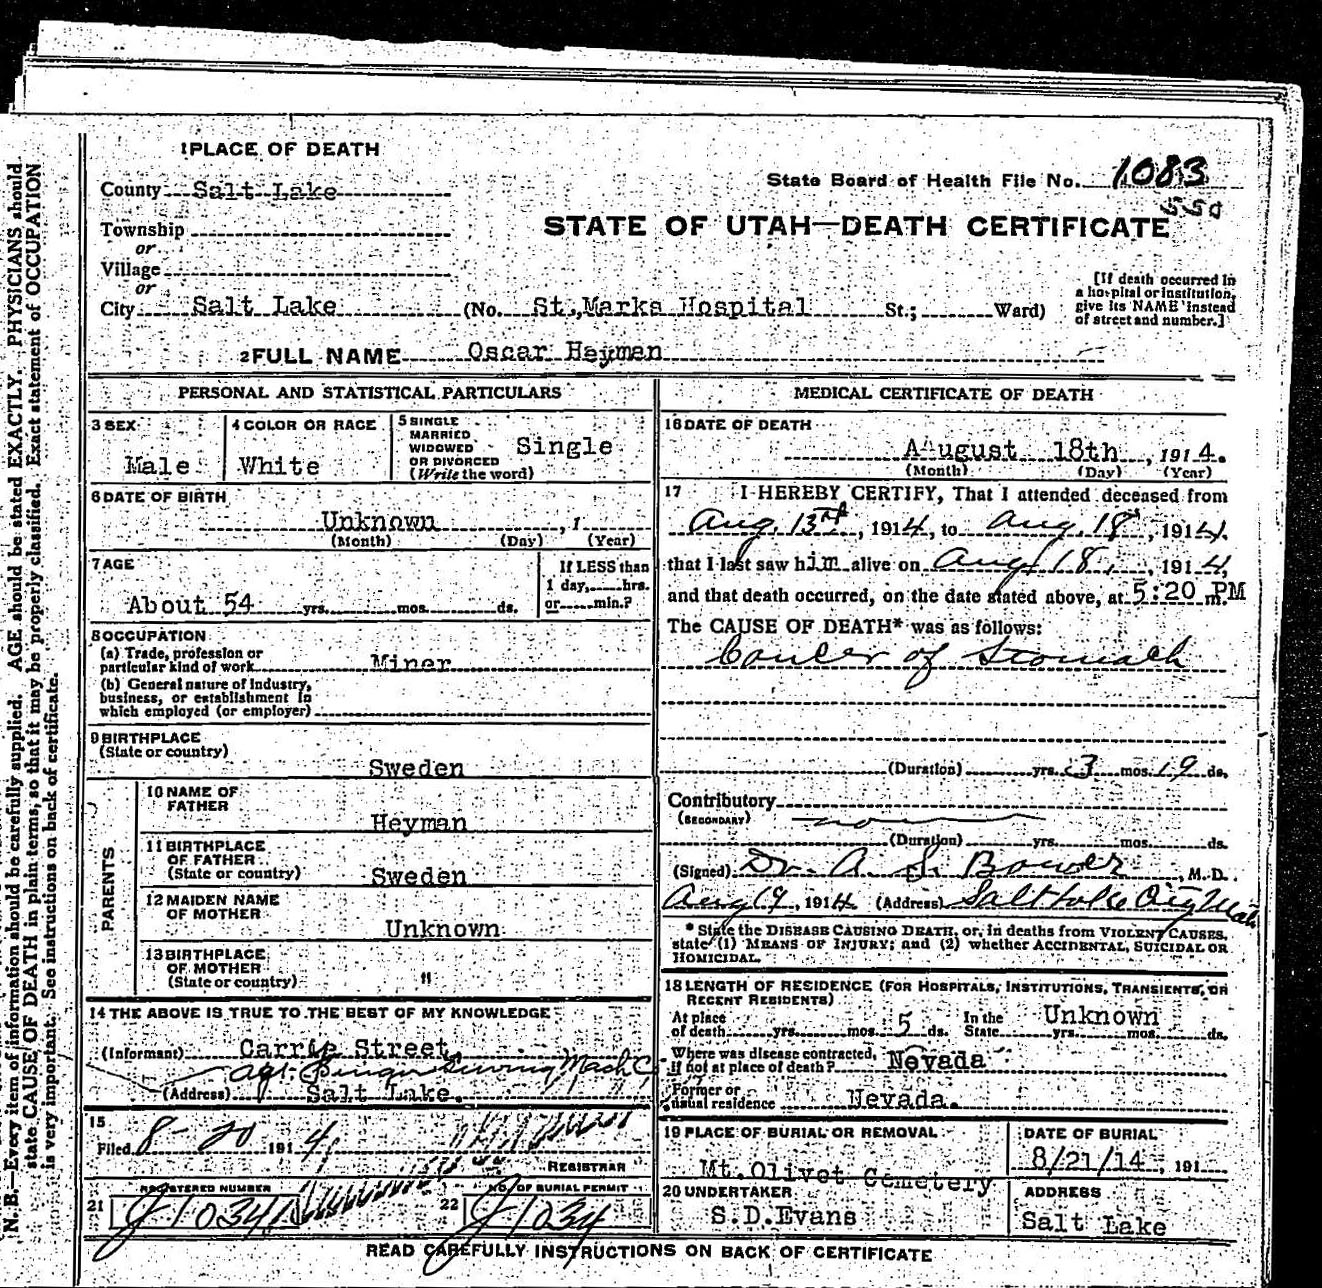 1 PLACE OF DEATH
County Salt Lake
State Board of Health File No. 1083
550
Township
or
Village
or
STATE OF UTAH—DEATH CERTIFICATE
City Salt Lake (No. St. Marks Hospital St.; Ward)
[If death occurred in
a hospital or institution,
give its NAME instead
of street and number.]
2 FULL NAME Oscar Heyman
PERSONAL AND STATISTICAL PARTICULARS
3 SEX
Male
4 COLOR OR RACE
White
5 SINGLE
MARRIED
WIDOWED
OR DIVORCED
(Write the word)
Single
6 DATE OF BIRTH
Unknown , 1
(Month) (Day) (Year)
7 AGE
About 54 yrs. mos. ds.
If LESS than
1 day, hrs.
or min.?
8 OCCUPATION
(a) Trade, profession or
particular kind of work Miner
(b) General nature of industry,
business, or establishment in
which employed (or employer)
9 BIRTHPLACE
(State or country)
Sweden
PARENTS
10 NAME OF
FATHER
Heyman
11 BIRTHPLACE
OF FATHER
(State or country) Sweden
12 MAIDEN NAME
OF MOTHER
Unknown
13 BIRTHPLACE
OF MOTHER
(State or country) "
14 THE ABOVE IS TRUE TO THE BEST OF MY KNOWLEDGE
(Informant) Carrie Street
Agt. Singer Sewing Mach C
(Address) Salt Lake.
15
Filed 8-20 1914
REGISTRAR
REGISTERED NUMBER
21 J1034
NO. OF BURIAL PERMIT
22 J1034
MEDICAL CERTIFICATE OF DEATH
16 DATE OF DEATH
August 18th , 1914.
(Month) (Day) (Year)
17 I HEREBY CERTIFY, That I attended deceased from
Aug. 13rd, 1914, to Aug. 18, 1914,
that I last saw him alive on Aug 18, 1914,
and that death occurred, on the date stated above, at 5:20 PM m.
The CAUSE OF DEATH* was as follows:
Cancer of Stomach
(Duration) yrs. 3 mos. 19 ds.
Contributory
(SECONDARY)
(Duration) yrs. mos. ds.
(Signed) Dr. A. S. Bower, M. D.
Aug 19, 1914 (Address) Salt Lake City Utah
* State the DISEASE CAUSING DEATH, or, in deaths from VIOLENT CAUSES,
state (1) MEANS OF INJURY; and (2) whether ACCIDENTAL, SUICIDAL OR
HOMICIDAL.
18 LENGTH OF RESIDENCE (FOR HOSPITALS, INSTITUTIONS, TRANSIENTS, OR
RECENT RESIDENTS)
At place
of death yrs. mos. 5 ds.
In the
State Unknown yrs. mos. ds.
Where was disease contracted,
If not at place of death? Nevada
Former or
usual residence Nevada.
19 PLACE OF BURIAL OR REMOVAL
Mt. Olivet Cemetery
DATE OF BURIAL
8/21/14, 191
20 UNDERTAKER
S.D.Evans
ADDRESS
Salt Lake
READ CAREFULLY INSTRUCTIONS ON BACK OF CERTIFICATE
N. B.—Every item of information should be carefully supplied. AGE should be stated EXACTLY. PHYSICIANS should
state CAUSE OF DEATH in plain terms, so that it may be properly classified. Exact statement of OCCUPATION
is very important. See instructions on back of certificate.